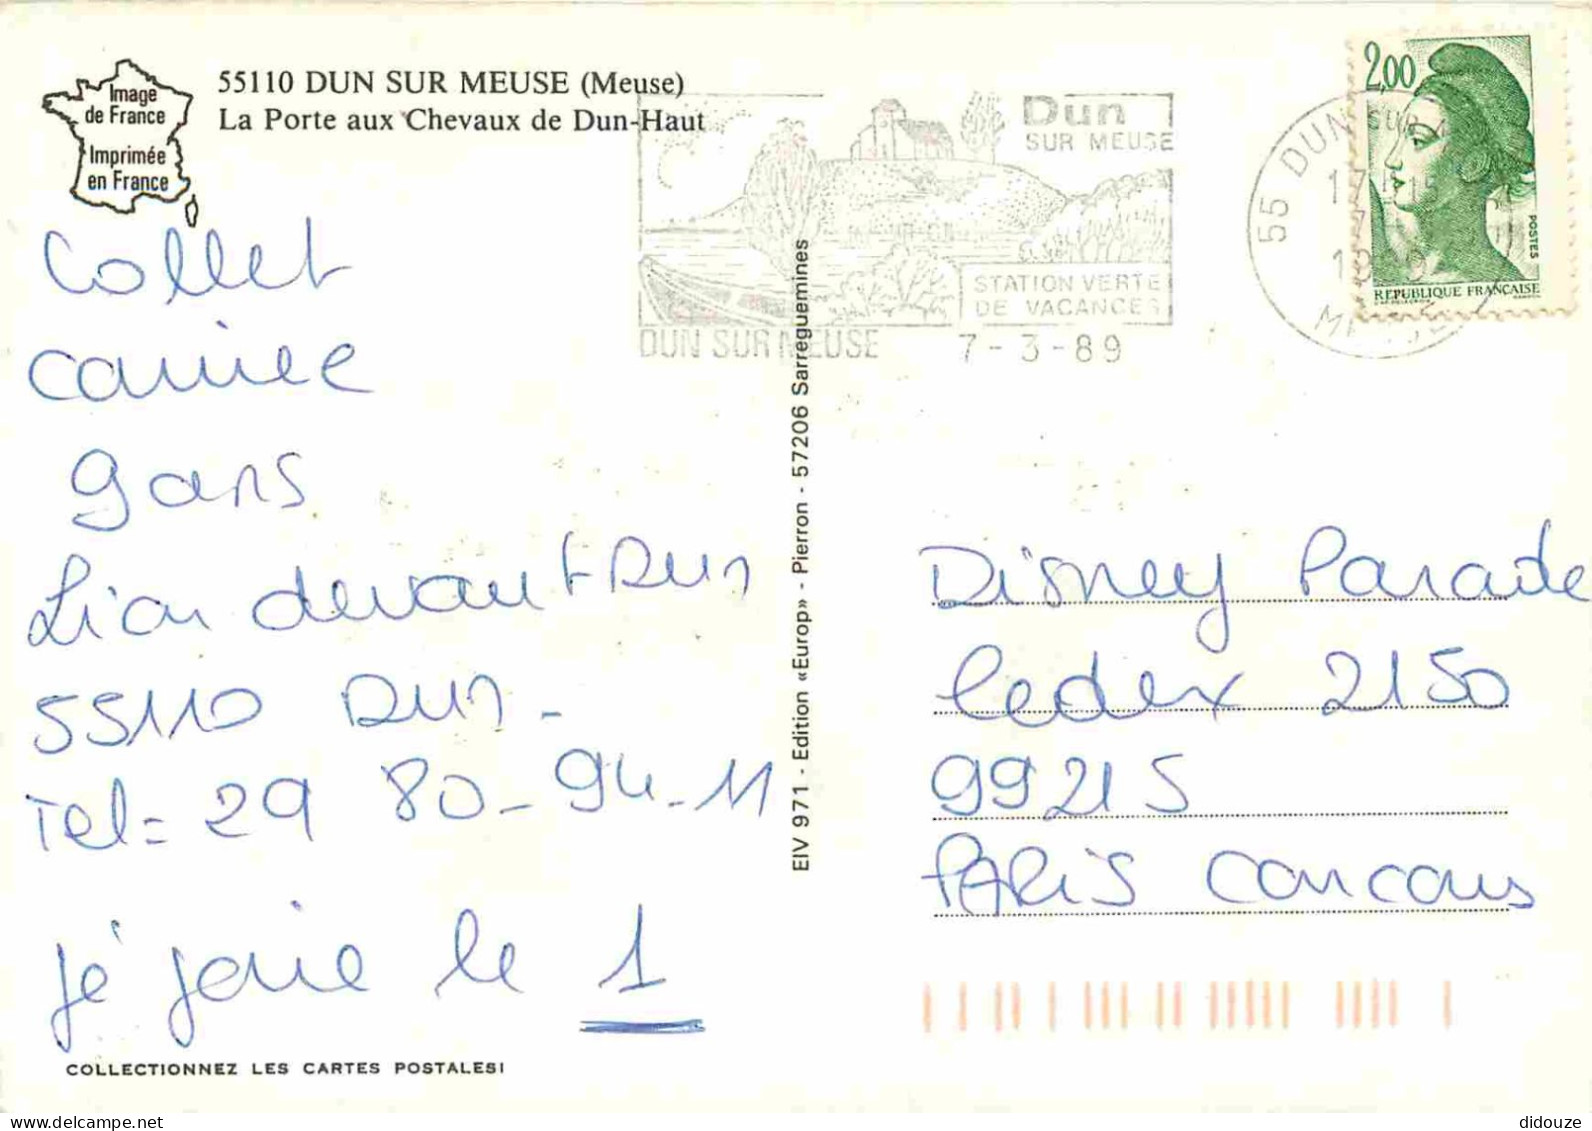 Image
de France
Imprimée
en France
55110 DUN SUR MEUSE (Meuse)
La Porte aux Chevaux de Dun-Haut
Dun
SUR MEUSE
STATION VERTE
DE VACANCES
DUN SUR MEUSE 7-3-89
55 DUN SUR
2,00
POSTES
REPUBLIQUE FRANÇAISE
Collet
Camiee
9 ans
Lion devant Dun
55110 Dun -
Tel = 29 80-94-11
je joue le 1
COLLECTIONNEZ LES CARTES POSTALES!
EIV 971 - Edition «Europ» - Pierron - 57206 Sarreguemines
Disney Parade
Cedex 2150
99215
PARIS Concours
delcampe.net
didouze